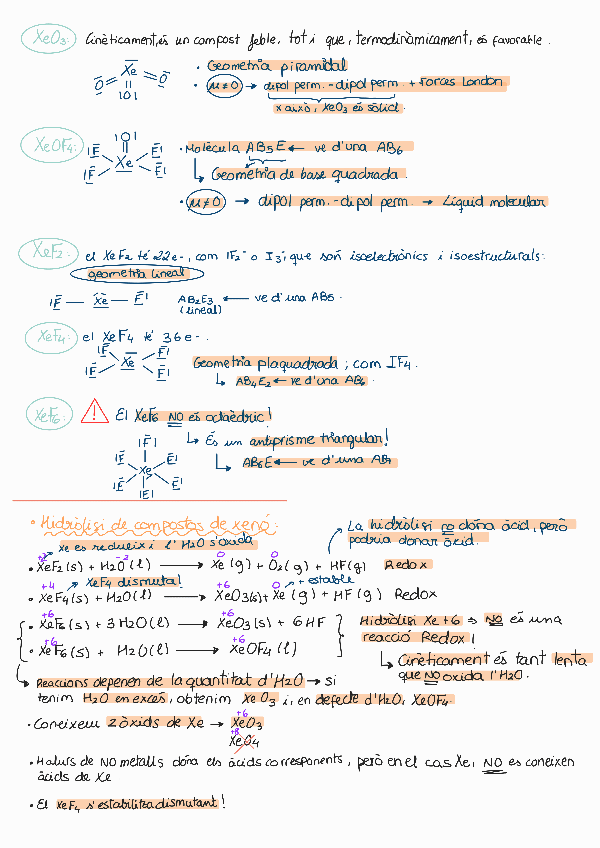 XeO₃: Cinèticament, és un compost feble, tot i que, termodinàmicament, és favorable.
• Geometria piramidal
O = Xe = O
|O|
• μ≠0 → dipol perm. - dipol perm + Forces London
x això, XeO₃ és sòlid.
XeOF₄:
|O|
|F F|
Xe
|F F|
• Molècula AB₅E ← ve d'una AB₆
↳ Geometria de base quadrada.
• μ≠0 → dipol perm. - dipol perm. → Líquid molecular
XeF₂: el XeF₂ té 22e-, com IF₂⁻ o I₃⁻, que són isoelectrònics i isoestructurals:
geometria lineal
|F — Xe — F| AB₂E₃ ← ve d'una AB₅.
(lineal)
XeF₄: el XeF₄ té 36e-.
|F F|
Xe
|F F|
Geometria plaquadrada; com IF₄.
↳ AB₄E₂ ← ve d'una AB₆.
XeF₆: ! El XeF₆ NO es octaèdric!
↳ És un antiprisme triangular!
|F|
|F F|
Xe
|F F|
|F|
↳ AB₆E ← ve d'una AB₇
• Hidròlisi de compostos de xenó:
→ La hidròlisi no dóna àcid, però
podria donar àcid.
↗ Xe es redueix i l'H₂O s'oxida
+2 -2 0 0
• XeF₂(s) + H₂O(l) → Xe(g) + O₂(g) + HF(g) Redox
+4 ↗ XeF₄ dismuta! +6 0 → + estable
• XeF₄(s) + H₂O(l) → XeO₃(s) + Xe(g) + HF(g) Redox
+6 +6
• XeF₆(s) + 3H₂O(l) → XeO₃(s) + 6HF
+6 +6
• XeF₆(s) + H₂O(l) → XeOF₄(l)
Hidròlisi Xe+6 ⇒ NO és una
reacció Redox!
↳ Cinèticament és tant lenta
que NO oxida l'H₂O.
↳ Reaccions depenen de la quantitat d'H₂O → si
tenim H₂O en excés, obtenim XeO₃ i, en defecte d'H₂O, XeOF₄.
+6
• Coneixeu 2 òxids de Xe → XeO₃
+8
XeO₄
• Halurs de NO metalls dóna els àcids corresponents, però en el cas Xe, NO es coneixen
àcids de Xe
• El XeF₄ s'estabilitza dismutant!